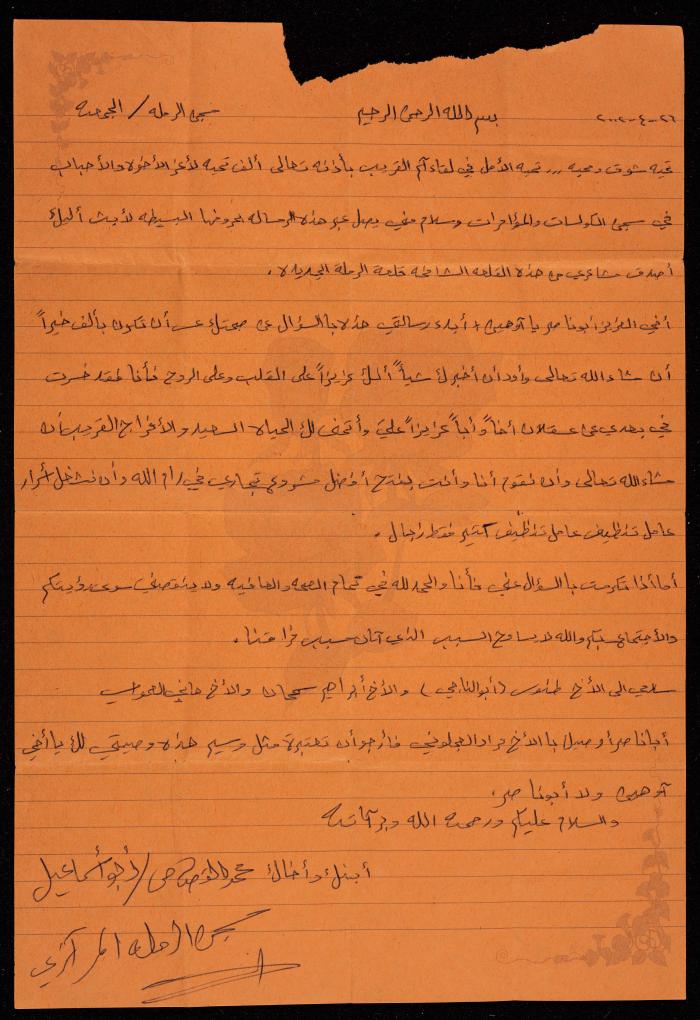 ٢٦-٤-٢٠٠٢ بسم الله الرحمن الرحيم سجن الرمله / الجمعه
تحيه شوق ومحبه ,,, تحيه الأمل في لقاءكم القريب بأذنه تعالى ألف تحيه لأعز الأخوة والأحباب
في سجن الكولسات والمؤامرات وسلام مني يصل عبر هذه الرساله بحروفها البسيطه لأبث أليك
أصدق مشاعري من هذه القلعه الشامخه قلعة الرملة الجديدة .
أخي العزيز أبوناصر يا كوهين + أبدء رسالتي هذه باالسؤال عن صحتك عسى أن تكون بألف خيراً
أن شاء الله تعالى وأود أن أخبرك شيأً أنك عزيزاً على القلب وعلى الروح فأنا فقد خسرت
في بعدي عن عسقلان أخاً وأباً عزيزاً عليّ وأتمنى لك الحياة السعيد والأفراج القريب أن
شاء الله تعالى وأن نقوم أنا وأنت بفتح أفضل مشروع تجاري في رام الله وأن نشغل أحرار
عامل تنظيف عامل تنظيف كتير فقط رجال .
أما أذا تكرمت باالسؤال عني فأنا والحمد لله في تمام الصحه والعافيه ولا ينقصني سوى رؤيتكم
والأجتماع بكم والله لا يسامح السبب الذي كان سبب فراقنا .
سلامي الى الأخ طنوس (أبو الناجي) والأخ أبراهيم سمحان والأخ هاني العواسي
أبا ناصر أوصيك باالأخ مراد العجلوني فأرجو أن تعتبرة مثل وسيم هذه وصيتي لك يا أخي
كوهين ولا أبوناصر .
والسلام عليكم ورحمة الله وبركاته
أبنك وأخاك محمد القصاص / أبو أسماعيل
سجن الرمله المركزي